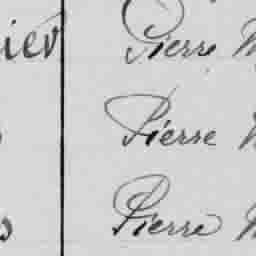 ier Pierre M
Pierre
s Pierre M